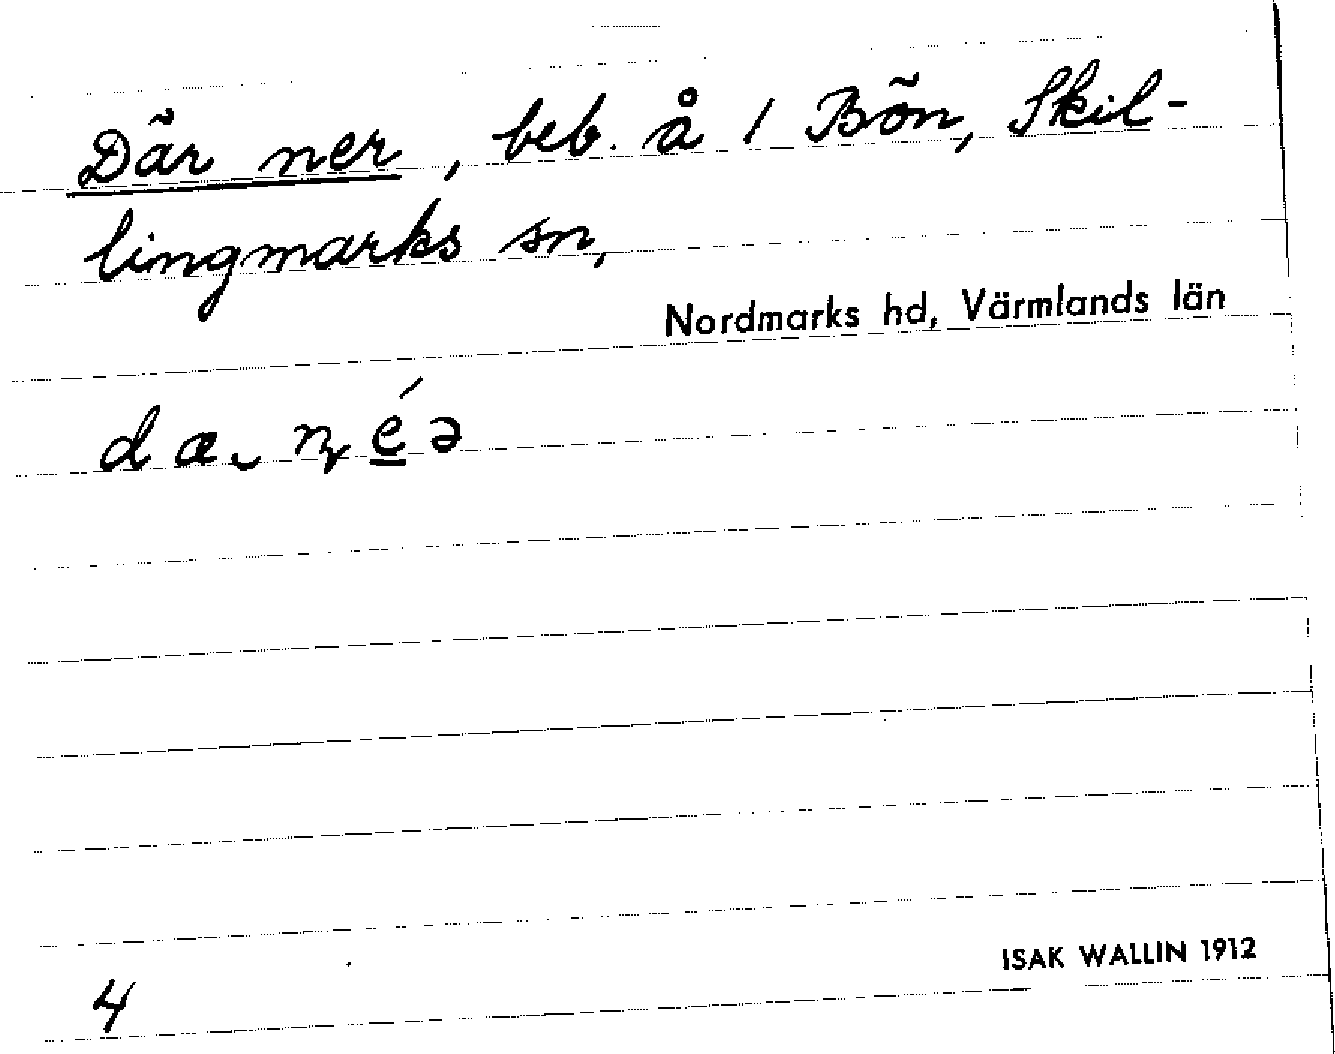 Där ner, beb. å 1 Bön, Skil-
lingmarks sn,
Nordmarks hd, Värmlands län
dæ˯ ɳé̱ə
ISAK WALLIN 1912
4